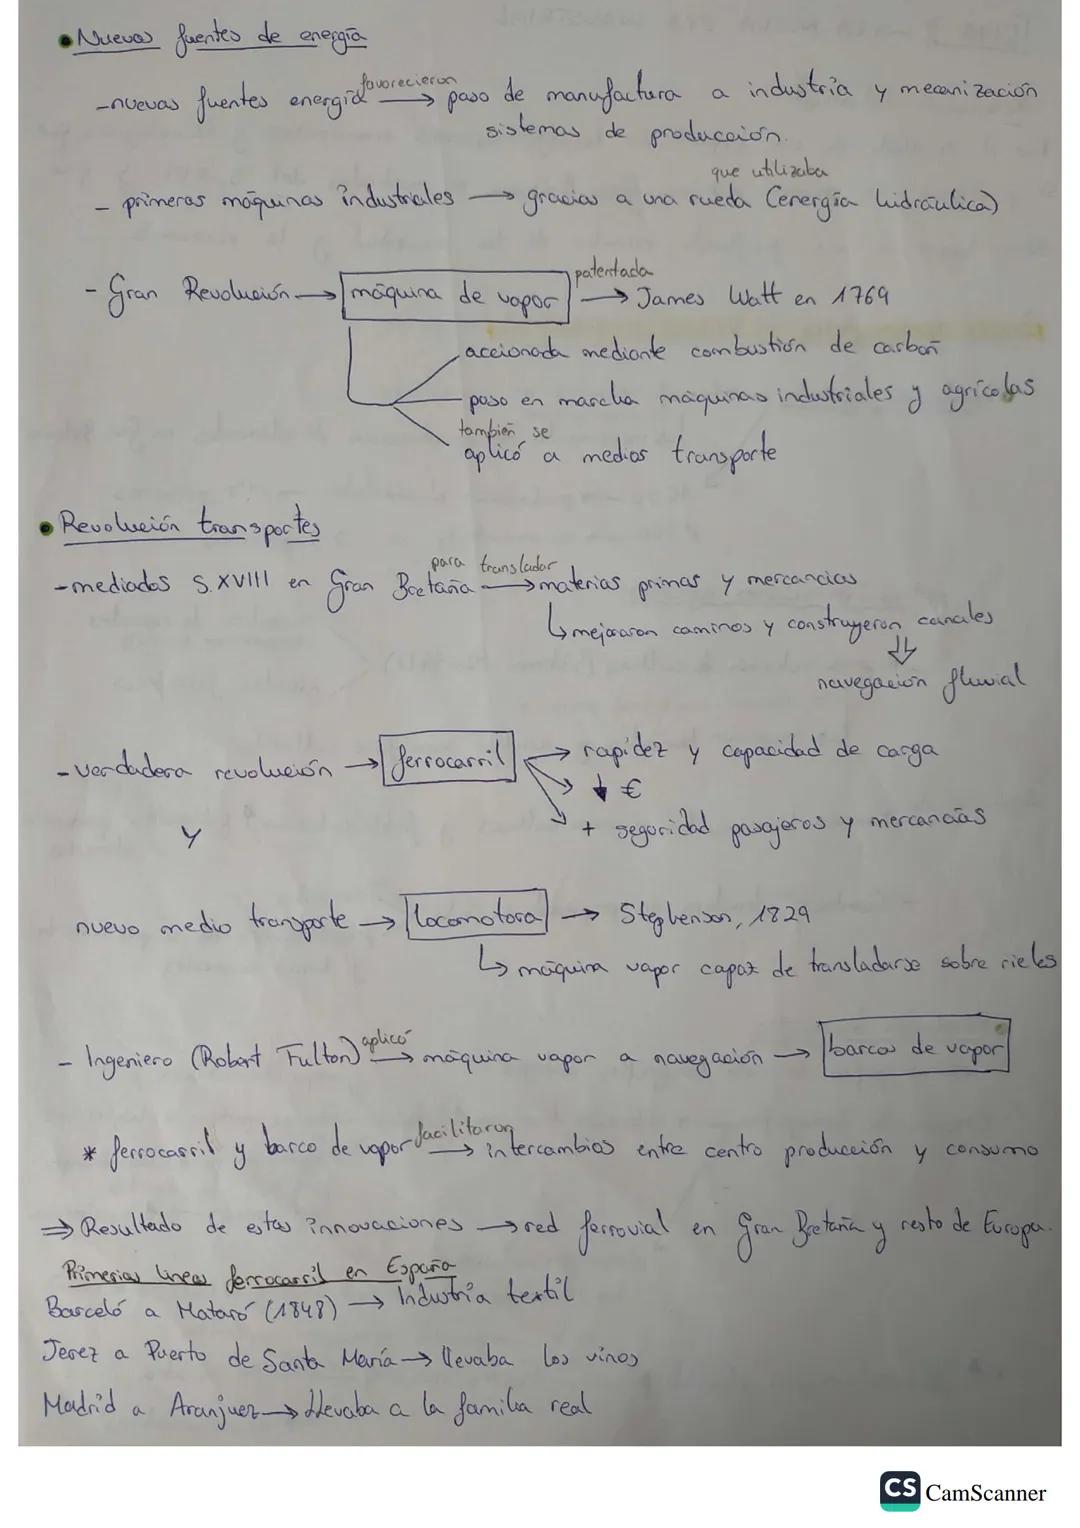 • Nuevas fuentes de energía
favorecieron
-nuevas fuentes energía → paso de manufactura a industria y mecanización
sistemas de producción.
que utilizaba
- primeras máquinas industriales → gracias a una rueda (energía hidráulica)
patentada
- Gran Revolución → máquina de vapor → James Watt en 1769
accionada mediante combustión de carbón
puso en marcha máquinas industriales y agrícolas
también se
aplicó a medios transporte
• Revolución transportes
para transladar
-mediados S.XVIII en Gran Bretaña → materias primas y mercancias
↳ mejoraron caminos y construyeron canales
⇓
navegación fluvial
-verdadera revolución → ferrocarril → rapidez y capacidad de carga
→ ↓ €
y → + seguridad pasajeros y mercancías
nuevo medio transporte → locomotora → Stephenson, 1829
↳ máquina vapor capaz de transladarse sobre rieles
aplicó
- Ingeniero (Robert Fulton) → máquina vapor a navegación → barcos de vapor
facilitaron
* ferrocarril y barco de vapor → intercambios entre centro producción y consumo
⇒ Resultado de estas innovaciones → red ferrovial en Gran Bretaña y resto de Europa.
Primerias lineas ferrocarril en España
Barceló a Mataró (1848) → Industria textil
Jerez a Puerto de Santa María → llevaba los vinos
Madrid a Aranjuez → llevaba a la familia real
CS CamScanner